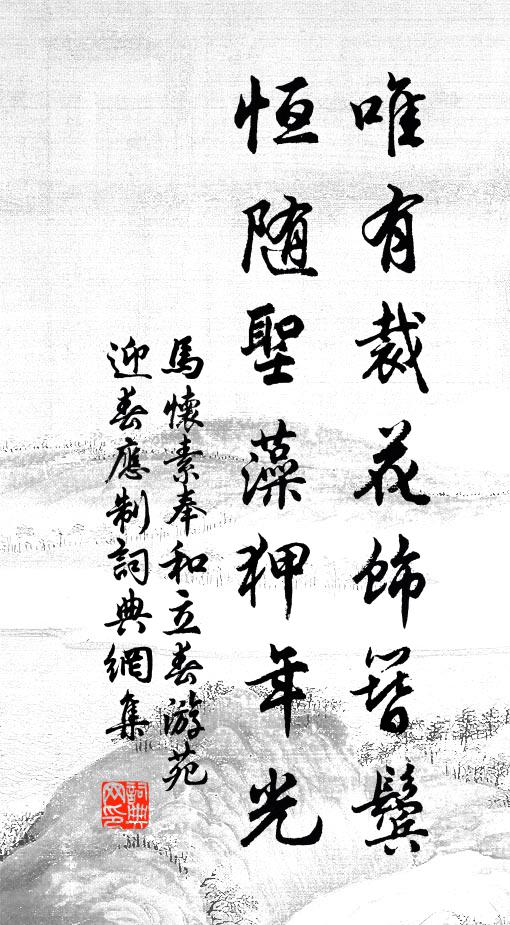 唯有裁花飾簪鬢
恒随聖藻狎年光
馬懷素奉和立春游苑
迎春應制詞典網集
詞典网印